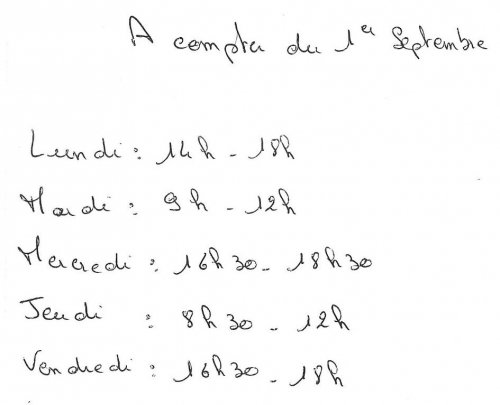 A compter du 1er Septembre
Lundi : 14h - 18h
Mardi : 9h - 12h
Mercredi : 16h30 - 18h30
Jeudi : 8h30 - 12h
Vendredi : 16h30 - 18h